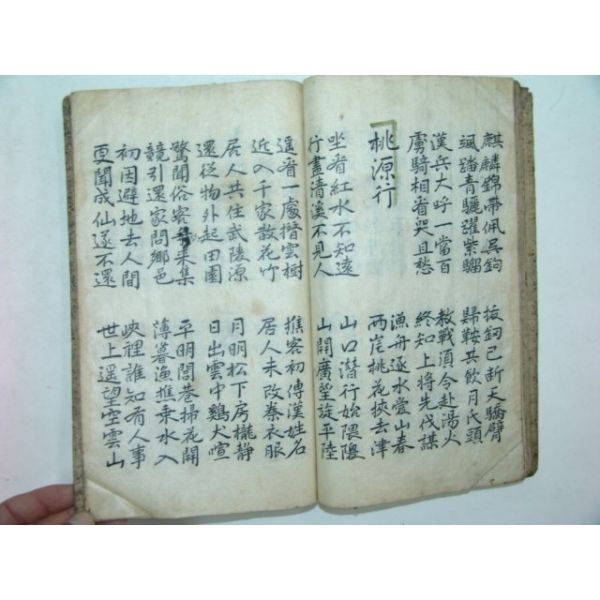 麒麟錦帶佩吳鉤
颯踏青驪躍紫騮
拔釼已斷天驕臂
歸鞍共飮月氏頭
漢兵大呼一當百
虜騎相看哭且愁
教戰須令赴湯火
終知上將先伐謀
桃源行
漁舟逐水愛山春
両崖桃花挾去津
坐看紅水不知遠
行盡淸溪不見人
山口潛行始隈隩
山開廣望旋平陸
遙看一處攢雲樹
近入千家散花竹
樵客初傳漢姓名
居人未改秦衣服
居人共住武陵源
還從物外起田園
月明松下房櫳静
日出雲中鷄犬喧
驚聞俗客來集
競引還家問鄉邑
平明閭巷掃花開
薄暮漁樵乘水入
初因避地去人間
更聞成仙遂不還
峽裡誰知有人事
世上遥望空雲山